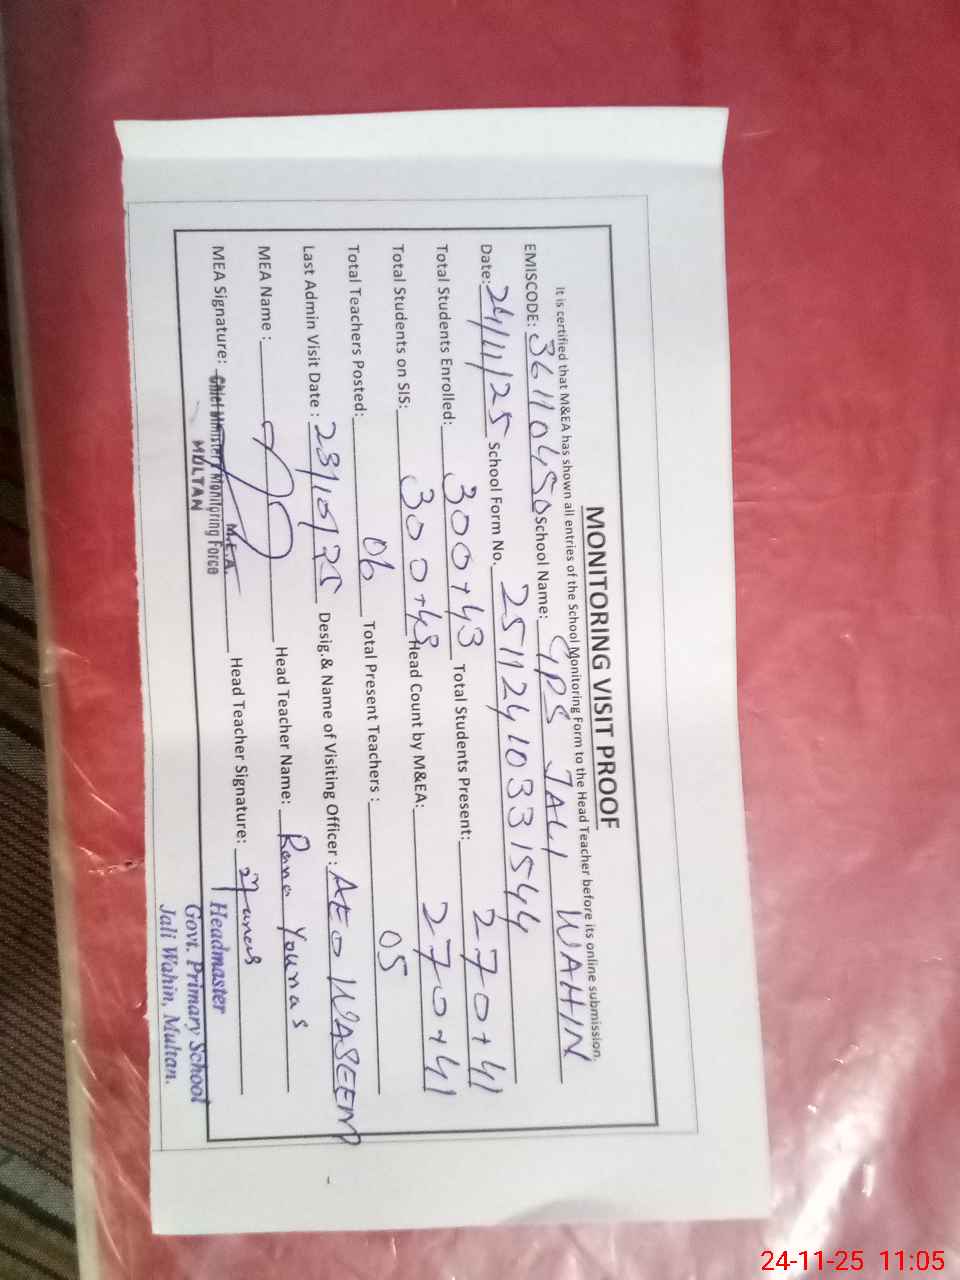 MONITORING VISIT PROOF
It is certified that M&EA has shown all entries of the School Monitoring Form to the Head Teacher before its online submission.
EMISCODE: 36110450 School Name: GPS JALI WAHIN
Date: 24/11/25 School Form No. 25112410331544
Total Students Enrolled: 300+43 Total Students Present: 270+41
Total Students on SIS: 300+43 Head Count by M&EA: 270+41
Total Teachers Posted: 06 Total Present Teachers : 05
Last Admin Visit Date : 23/10/25 Desig.& Name of Visiting Officer : AEO WASEEM
MEA Name : Head Teacher Name: Rana Younas
MEA Signature: M.E.A. Head Teacher Signature:
Chief Minister's Monitoring Force
MULTAN
Headmaster
Govt. Primary School
Jali Wahin, Multan.
24-11-25 11:05